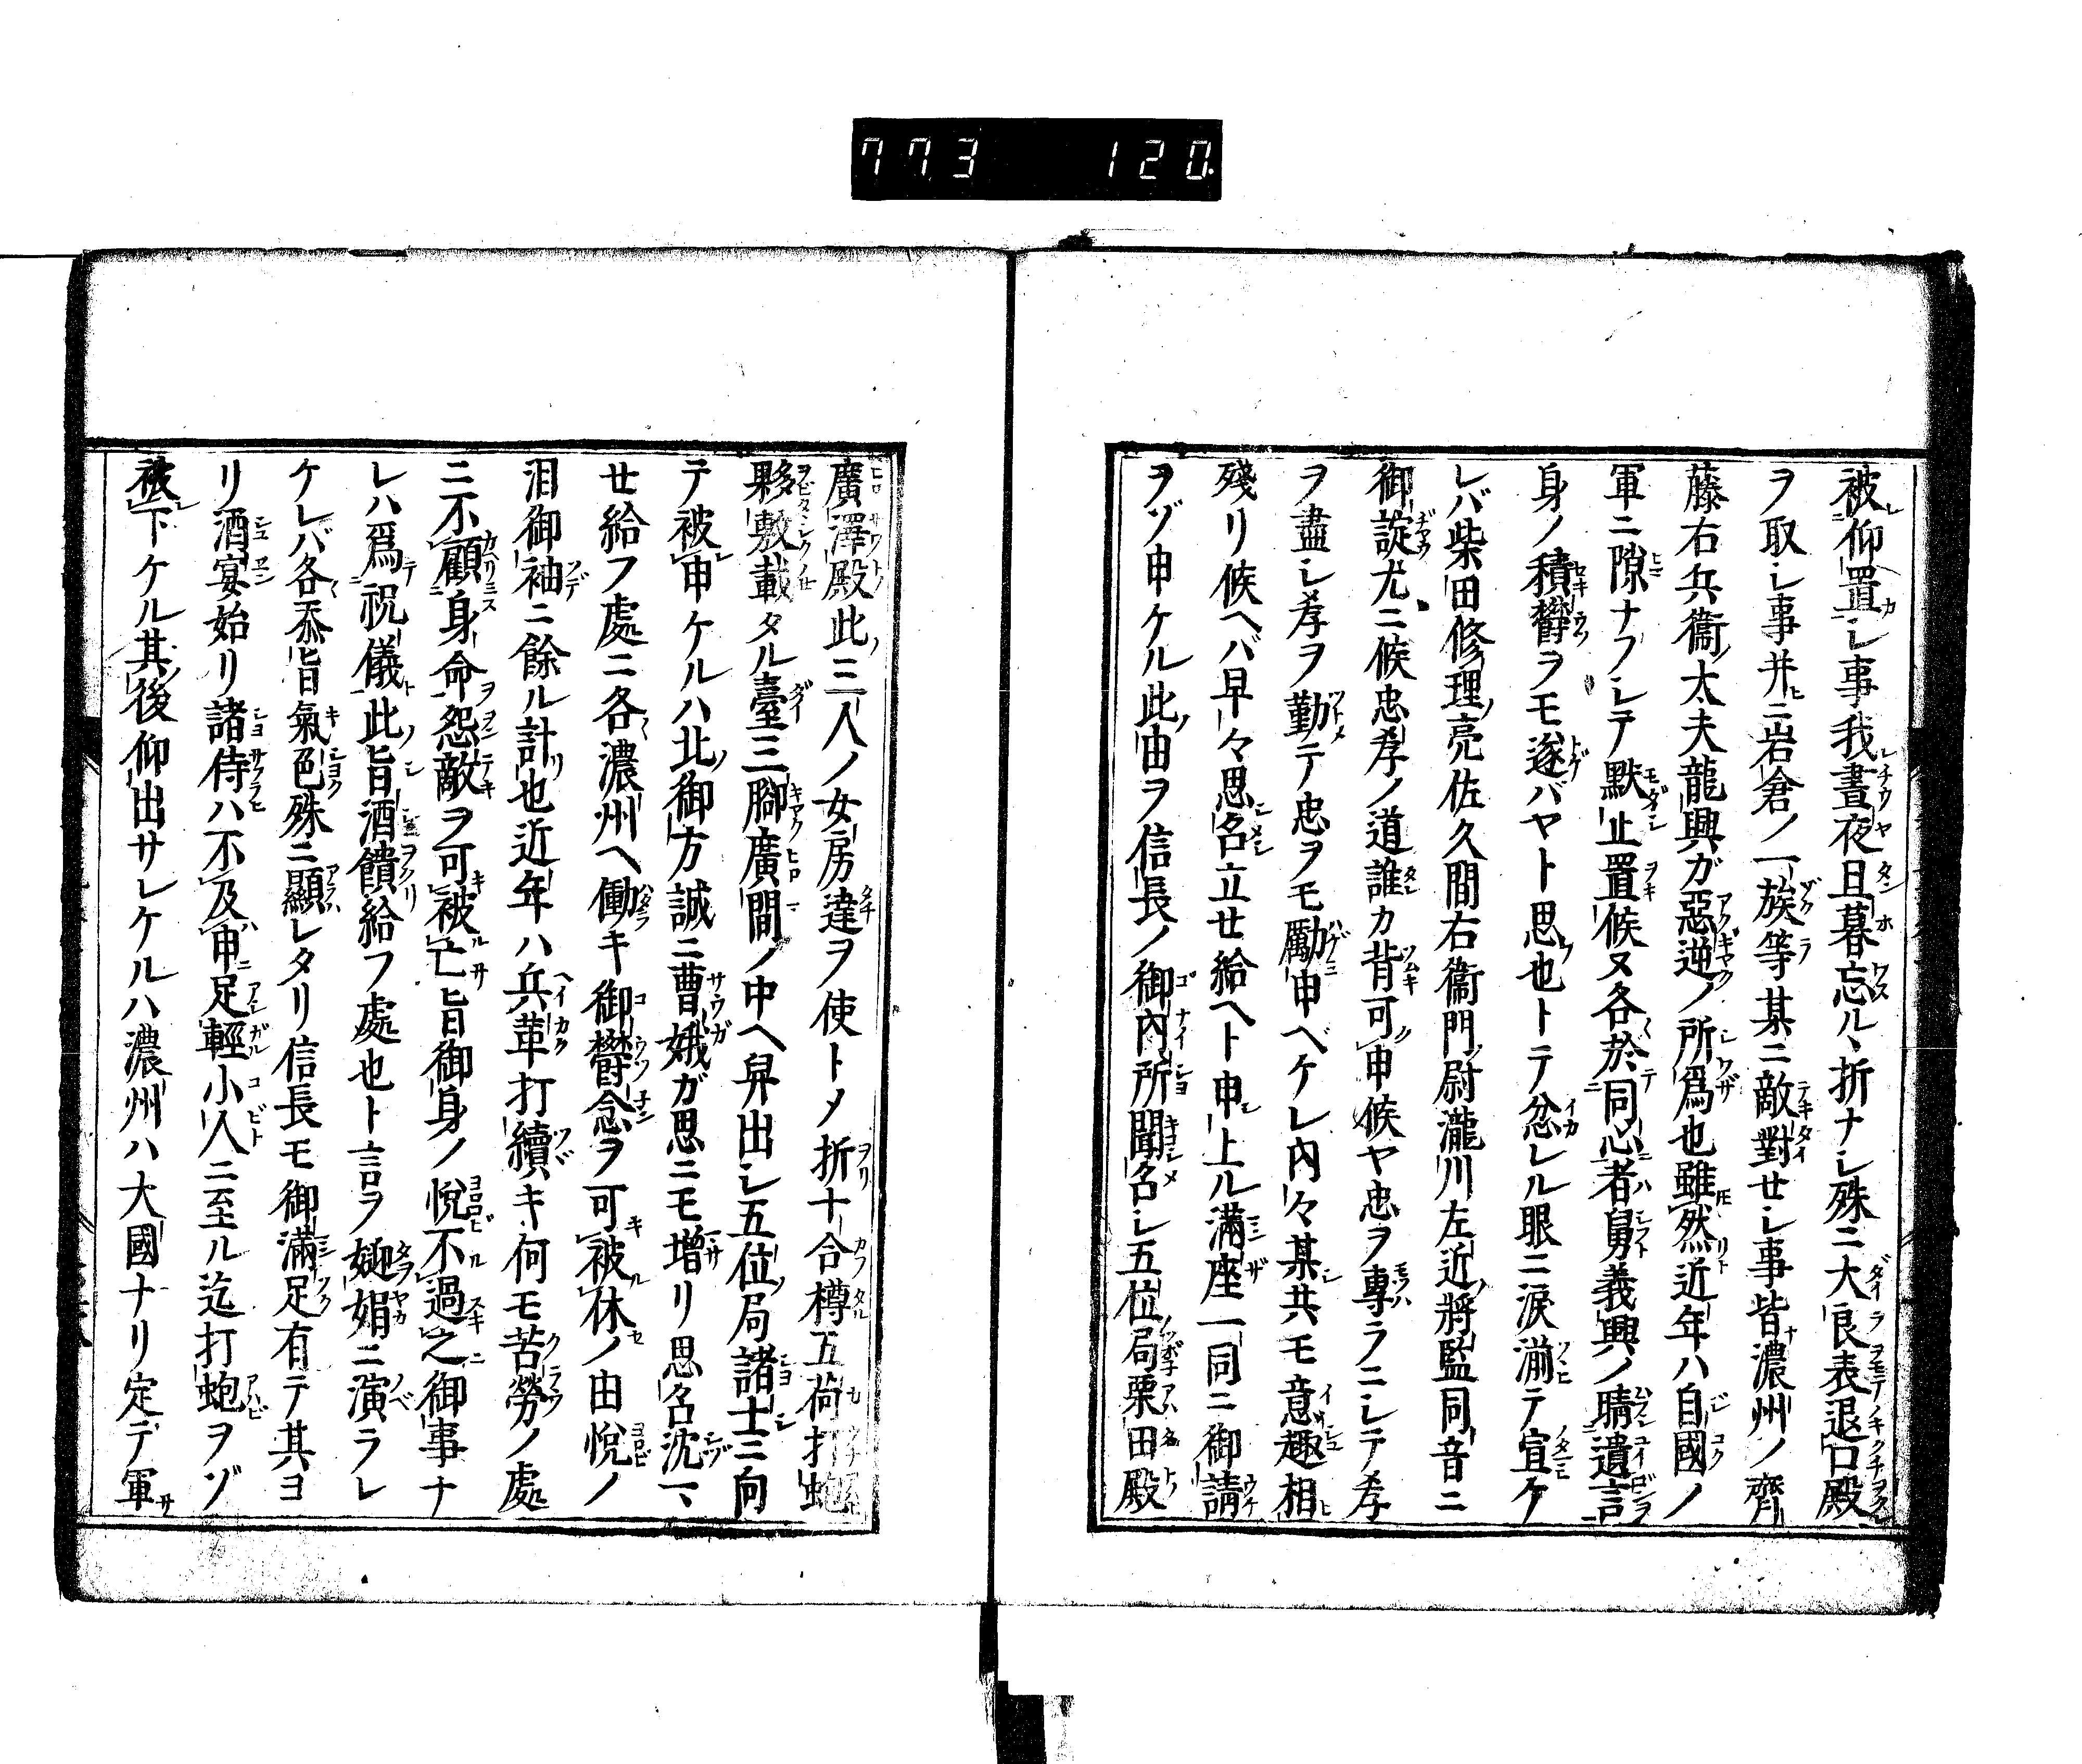 773 120
被仰置シ事我晝夜旦暮忘ルヽ折ナシ殊ニ大良表退口殿
ヲ取シ事并ニ岩倉ノ一族等某ニ敵對セシ事皆濃州ノ齊
藤右兵衞太夫龍興ガ惡逆ノ所爲也雖然近年ハ自國ノ
軍ニ隙ナフシテ默止置候又各於同心者舅義興ノ晴遺言
身ノ積欝ヲモ遂バヤト思也トテ忿レル眼ニ淚湔テ宣ケ
レバ柴田修理亮佐久間右衞門尉瀧川左近將監同音ニ
御諚尤ニ候忠孝ノ道誰カ背可申候ヤ忠ヲ專ラニシテ孝
ヲ盡シ孝ヲ勤テ忠ヲモ勵申ベケレ內々某共モ意趣相
殘リ候ヘバ早々思名立セ給ヘト申上ル滿座一同ニ御請
ヲゾ申ケル此由ヲ信長ノ御內所聞名シ五位局栗田殿
廣澤殿此三人ノ女房達ヲ使トメ折十合樽五荷打蚫
夥敷載タル臺三腳廣間ノ中ヘ舁出シ五位局諸士ニ向
テ被申ケルハ北御方誠ニ曹娥ガ思ニモ增リ思名沈マヽ
セ給フ處ニ各濃州ヘ働キ御欝念ヲ可被休ノ由悅ノ
泪御袖ニ餘ル計也近年ハ兵革打續キ何モ苦勞ノ處
ニ不顧身命怨敵ヲ可被亡旨御身ノ悅不過之御事ナ
レハ爲祝儀此旨酒饋給フ處也ト言ヲ嫐娟ニ演ラレ
ケレバ各忝旨氣色殊ニ顯レタリ信長モ御滿足有テ其ヨ
リ酒宴始リ諸侍ハ不及申足輕小人ニ至ル迄打蚫ヲゾ
被下ケル其後仰出サレケルハ濃州ハ大國ナリ定デ軍